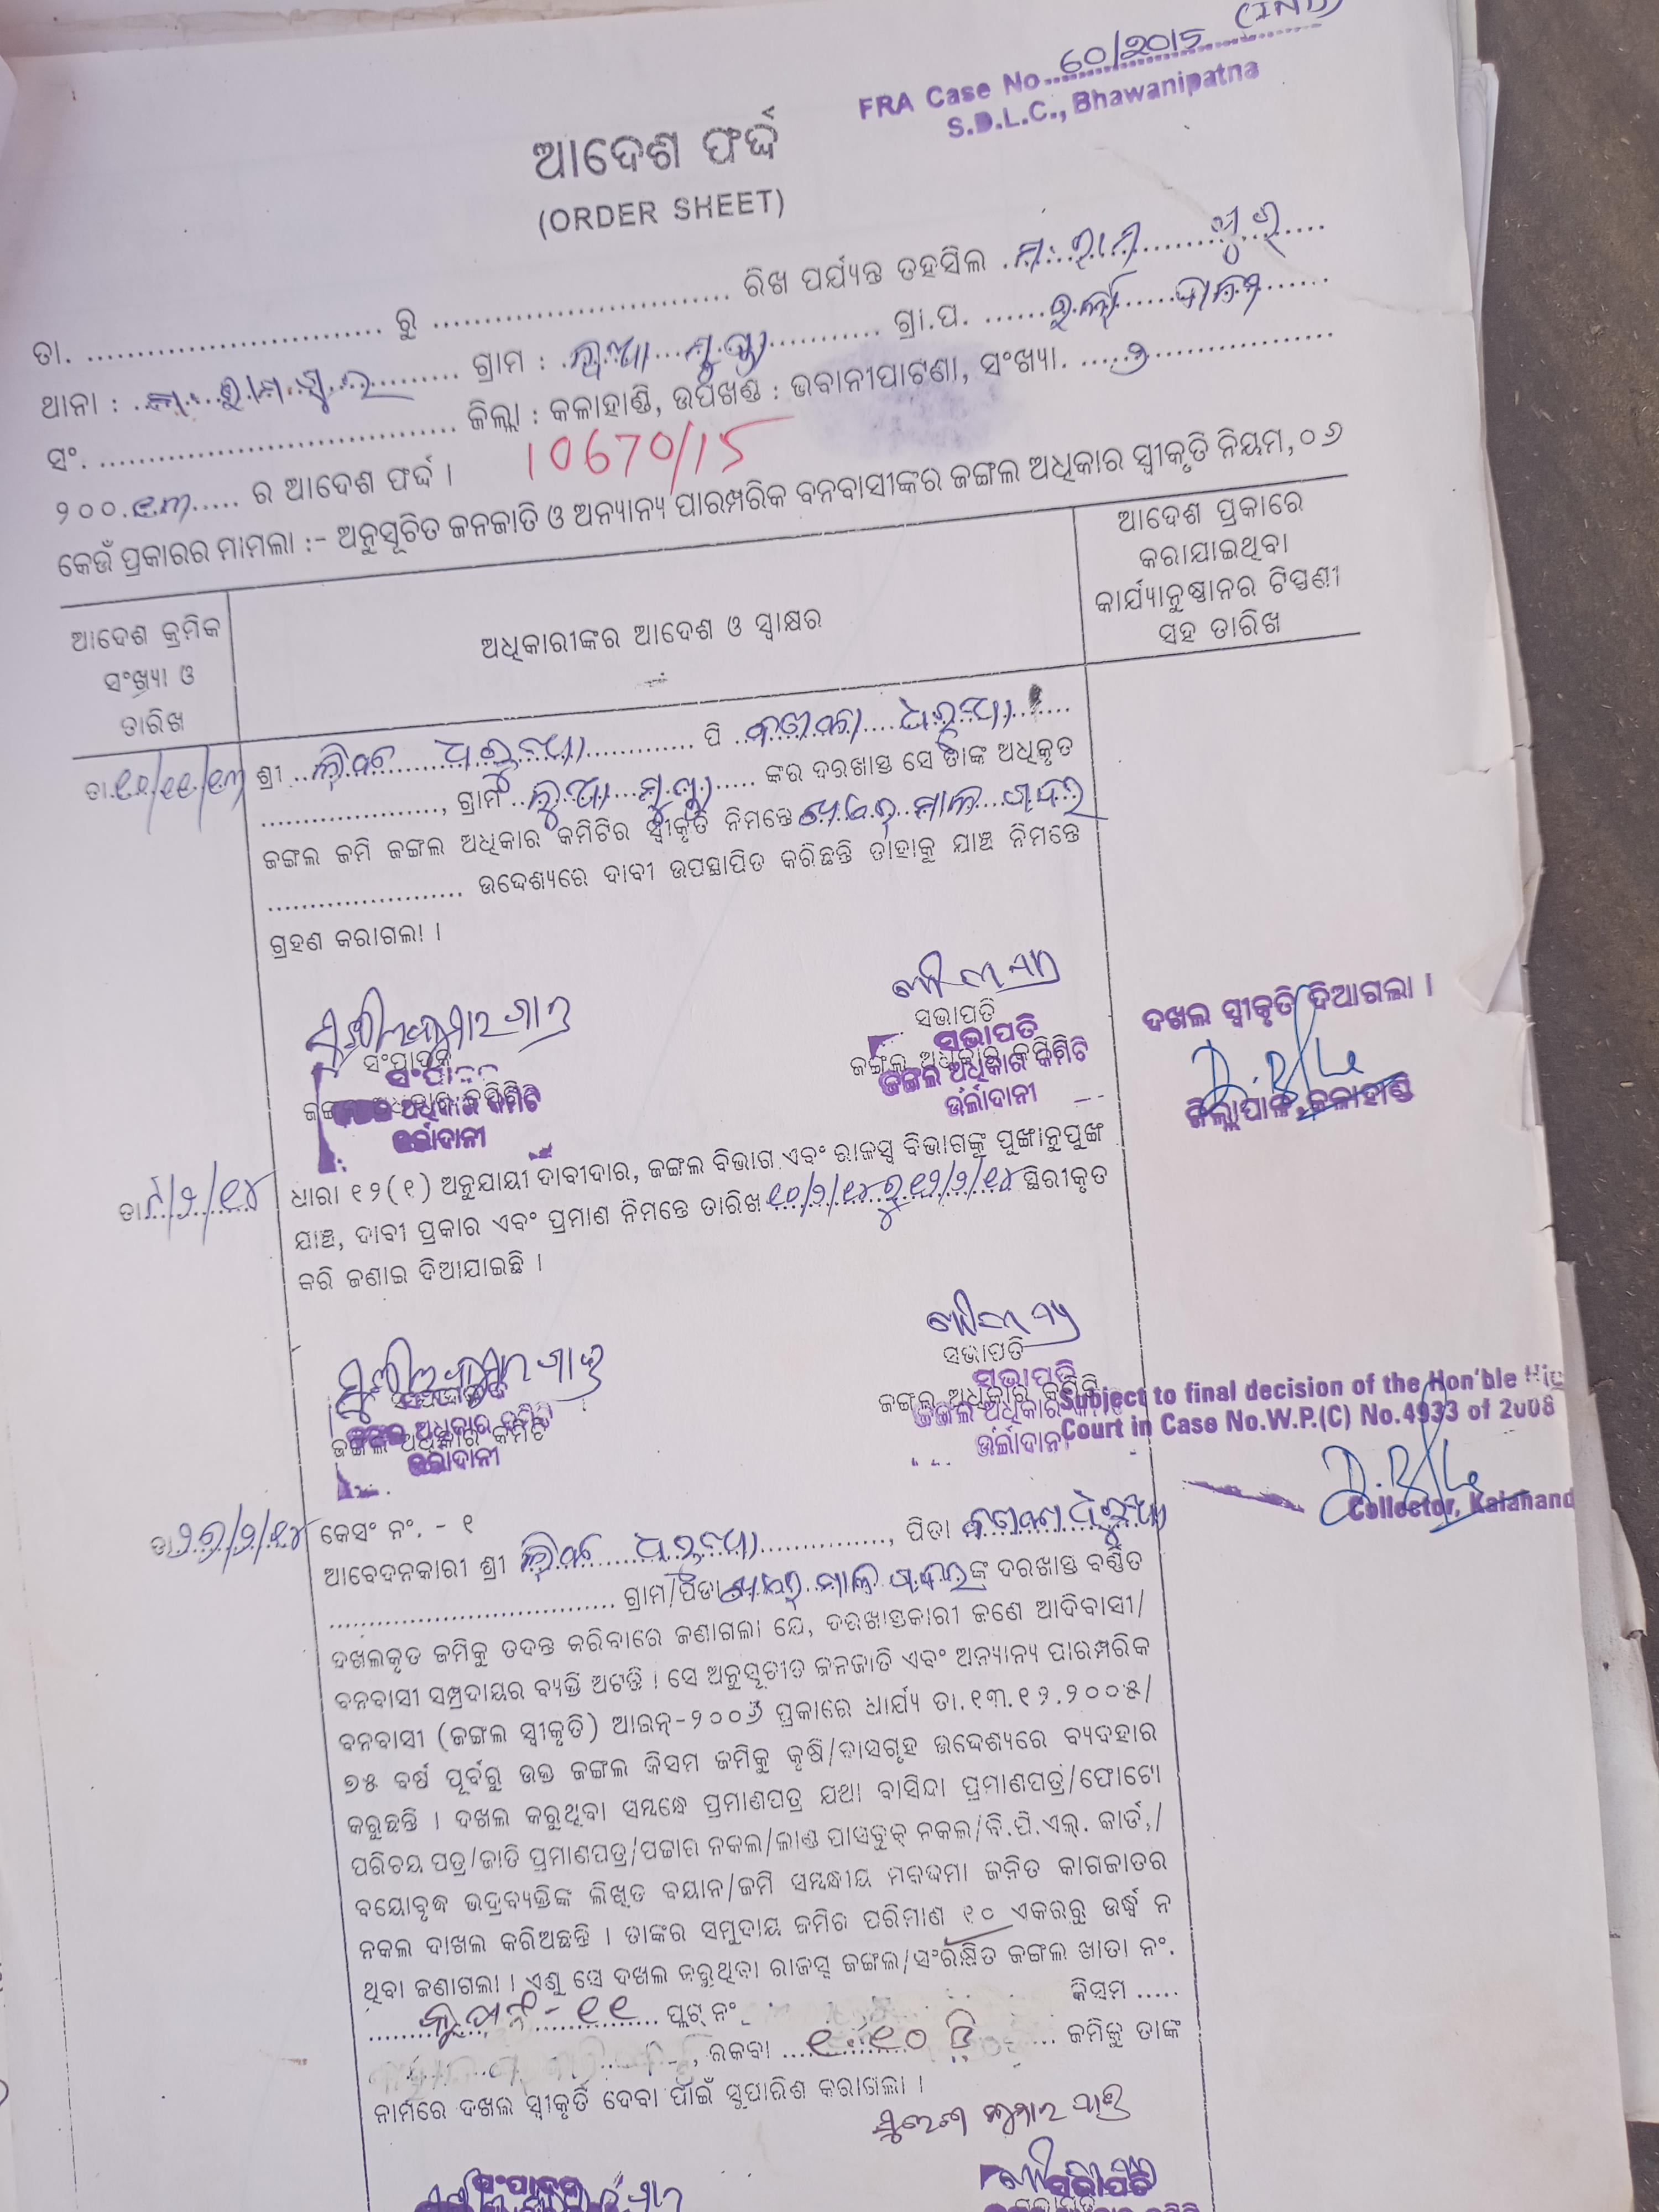 FRA Case No. 60/2015 (IND)
S.D.L.C., Bhawanipatna
ଆଦେଶ ଫର୍ଦ୍ଦ
(ORDER SHEET)
ତା. ............ ରୁ ............ ରିଖ ପର୍ଯ୍ୟନ୍ତ ତହସିଲ ମ. ରାମପୁର
ଥାନା : ମ. ରାମପୁର ଗ୍ରାମ : ଗ୍ରା.ପ. ଉର୍ଲାଦାନୀ
ସଂ. ............ ଜିଲ୍ଲା : କଳାହାଣ୍ଡି, ଉପଖଣ୍ଡ : ଭବାନୀପାଟଣା, ସଂଖ୍ୟା. ୭
୨୦୦.୧୩..... ର ଆଦେଶ ଫର୍ଦ୍ଦ । 10670/15
କେଉଁ ପ୍ରକାରର ମାମଲା :- ଅନୁସୂଚିତ ଜନଜାତି ଓ ଅନ୍ୟାନ୍ୟ ପାରମ୍ପରିକ ବନବାସୀଙ୍କର ଜଙ୍ଗଲ ଅଧିକାର ସ୍ଵୀକୃତି ନିୟମ,୦୬
ଆଦେଶ କ୍ରମିକ
ସଂଖ୍ୟା ଓ
ତାରିଖ
ଅଧିକାରୀଙ୍କର ଆଦେଶ ଓ ସ୍ୱାକ୍ଷର
ଆଦେଶ ପ୍ରକାରେ
କରାଯାଇଥିବା
କାର୍ଯ୍ୟାନୁଷ୍ଠାନର ଟିପ୍ପଣୀ
ସହ ତାରିଖ
ଶ୍ରୀ ............ ପି ............
............, ଗ୍ରାମ ............ ଙ୍କର ଦରଖାସ୍ତ ସେ ତାଙ୍କ ଅଧିକୃତ
ଜଙ୍ଗଲ ଜମି ଜଙ୍ଗଲ ଅଧିକାର କମିଟିର ସ୍ଵୀକୃତି ନିମନ୍ତେ
............ ଉଦ୍ଦେଶ୍ୟରେ ଦାବୀ ଉପସ୍ଥାପିତ କରିଛନ୍ତି ତାହାକୁ ଯାଞ୍ଚ ନିମନ୍ତେ
ଗ୍ରହଣ କରାଗଲା ।
ସଂପାଦକ
ଜଙ୍ଗଲ ଅଧିକାର କମିଟି
ଉର୍ଲାଦାନୀ
ସଭାପତି
ସଭାପତି
ଜଙ୍ଗଲ ଅଧିକାର କମିଟି
ଉର୍ଲାଦାନୀ
ଦଖଲ ସ୍ଵୀକୃତି ଦିଆଗଲା ।
ଜିଲ୍ଲାପାଳ, କଳାହାଣ୍ଡି
ତା ୮/୨/୧୪
ଧାରା ୧୨(୧) ଅନୁଯାୟୀ ଦାବୀଦାର, ଜଙ୍ଗଲ ବିଭାଗ ଏବଂ ରାଜସ୍ୱ ବିଭାଗଙ୍କୁ ପୁଙ୍ଖାନୁପୁଙ୍ଖ
ଯାଞ୍ଚ, ଦାବୀ ପ୍ରକାର ଏବଂ ପ୍ରମାଣ ନିମନ୍ତେ ତାରିଖ ୧୦/୨/୧୪ ରୁ ୧୨/୨/୧୪ ସ୍ଥିରୀକୃତ
କରି ଜଣାଇ ଦିଆଯାଇଛି ।
ଜଙ୍ଗଲ ଅଧିକାର କମିଟି
ଉର୍ଲାଦାନୀ
ସଭାପତି
ସଭାପତି
ଜଙ୍ଗଲ ଅଧିକାର କମିଟି
ଉର୍ଲାଦାନୀ
Subject to final decision of the Hon'ble Hig
Court in Case No.W.P.(C) No.4933 of 2008
Collector, Kalahand
କେସଂ ନଂ. - ୧
ଆବେଦନକାରୀ ଶ୍ରୀ ............, ପିତା
............ ଗ୍ରାମ/ପଡା ............ଙ୍କ ଦରଖାସ୍ତ ବର୍ଣ୍ଣିତ
ଦଖଲକୃତ ଜମିକୁ ତଦନ୍ତ କରିବାରେ ଜଣାଗଲା ଯେ, ଦରଖାସ୍ତକାରୀ ଜଣେ ଆଦିବାସୀ/
ବନବାସୀ ସମ୍ପ୍ରଦାୟର ବ୍ୟକ୍ତି ଅଟନ୍ତି । ସେ ଅନୁସୂଚୀତ ଜନଜାତି ଏବଂ ଅନ୍ୟାନ୍ୟ ପାରମ୍ପରିକ
ବନବାସୀ (ଜଙ୍ଗଲ ସ୍ଵୀକୃତି) ଆଇନ୍-୨୦୦୬ ପ୍ରକାରେ ଧାର୍ଯ୍ୟ ତା.୧୩.୧୨.୨୦୦୫/
୭୫ ବର୍ଷ ପୂର୍ବରୁ ଉକ୍ତ ଜଙ୍ଗଲ କିସମ ଜମିକୁ କୃଷି/ବାସଗୃହ ଉଦ୍ଦେଶ୍ୟରେ ବ୍ୟବହାର
କରୁଛନ୍ତି । ଦଖଲ କରୁଥିବା ସମ୍ବନ୍ଧେ ପ୍ରମାଣପତ୍ର ଯଥା ବାସିନ୍ଦା ପ୍ରମାଣପତ୍ର/ଫୋଟୋ
ପରିଚୟ ପତ୍ର/ଜାତି ପ୍ରମାଣପତ୍ର/ପଟ୍ଟାର ନକଲ/ଲାଣ୍ଡ ପାସବୁକ୍ ନକଲ/ବି.ପି.ଏଲ୍. କାର୍ଡ,/
ବୟୋବୃଦ୍ଧ ଭଦ୍ରବ୍ୟକ୍ତିଙ୍କ ଲିଖିତ ବୟାନ/ଜମି ସମ୍ବନ୍ଧୀୟ ମକଦ୍ଦମା ଜନିତ କାଗଜାତର
ନକଲ ଦାଖଲ କରିଅଛନ୍ତି । ତାଙ୍କର ସମୁଦାୟ ଜମିର ପରିମାଣ ୧୦ ଏକରରୁ ଉର୍ଦ୍ଧ୍ୱ ନ
ଥିବା ଜଣାଗଲା । ଏଣୁ ସେ ଦଖଲ କରୁଥିବା ରାଜସ୍ୱ ଜଙ୍ଗଲ/ସଂରକ୍ଷିତ ଜଙ୍ଗଲ ଖାତା ନଂ.
............ - ୧୧ ପ୍ଲଟ୍ ନଂ ............ କିସମ .....
............, ରକବା ୧.୧୦ ଡି ଜମିକୁ ତାଙ୍କ
ନାମରେ ଦଖଲ ସ୍ଵୀକୃତି ଦେବା ପାଇଁ ସୁପାରିଶ କରାଗଲା ।
ସଂପାଦକ
ସଭାପତି